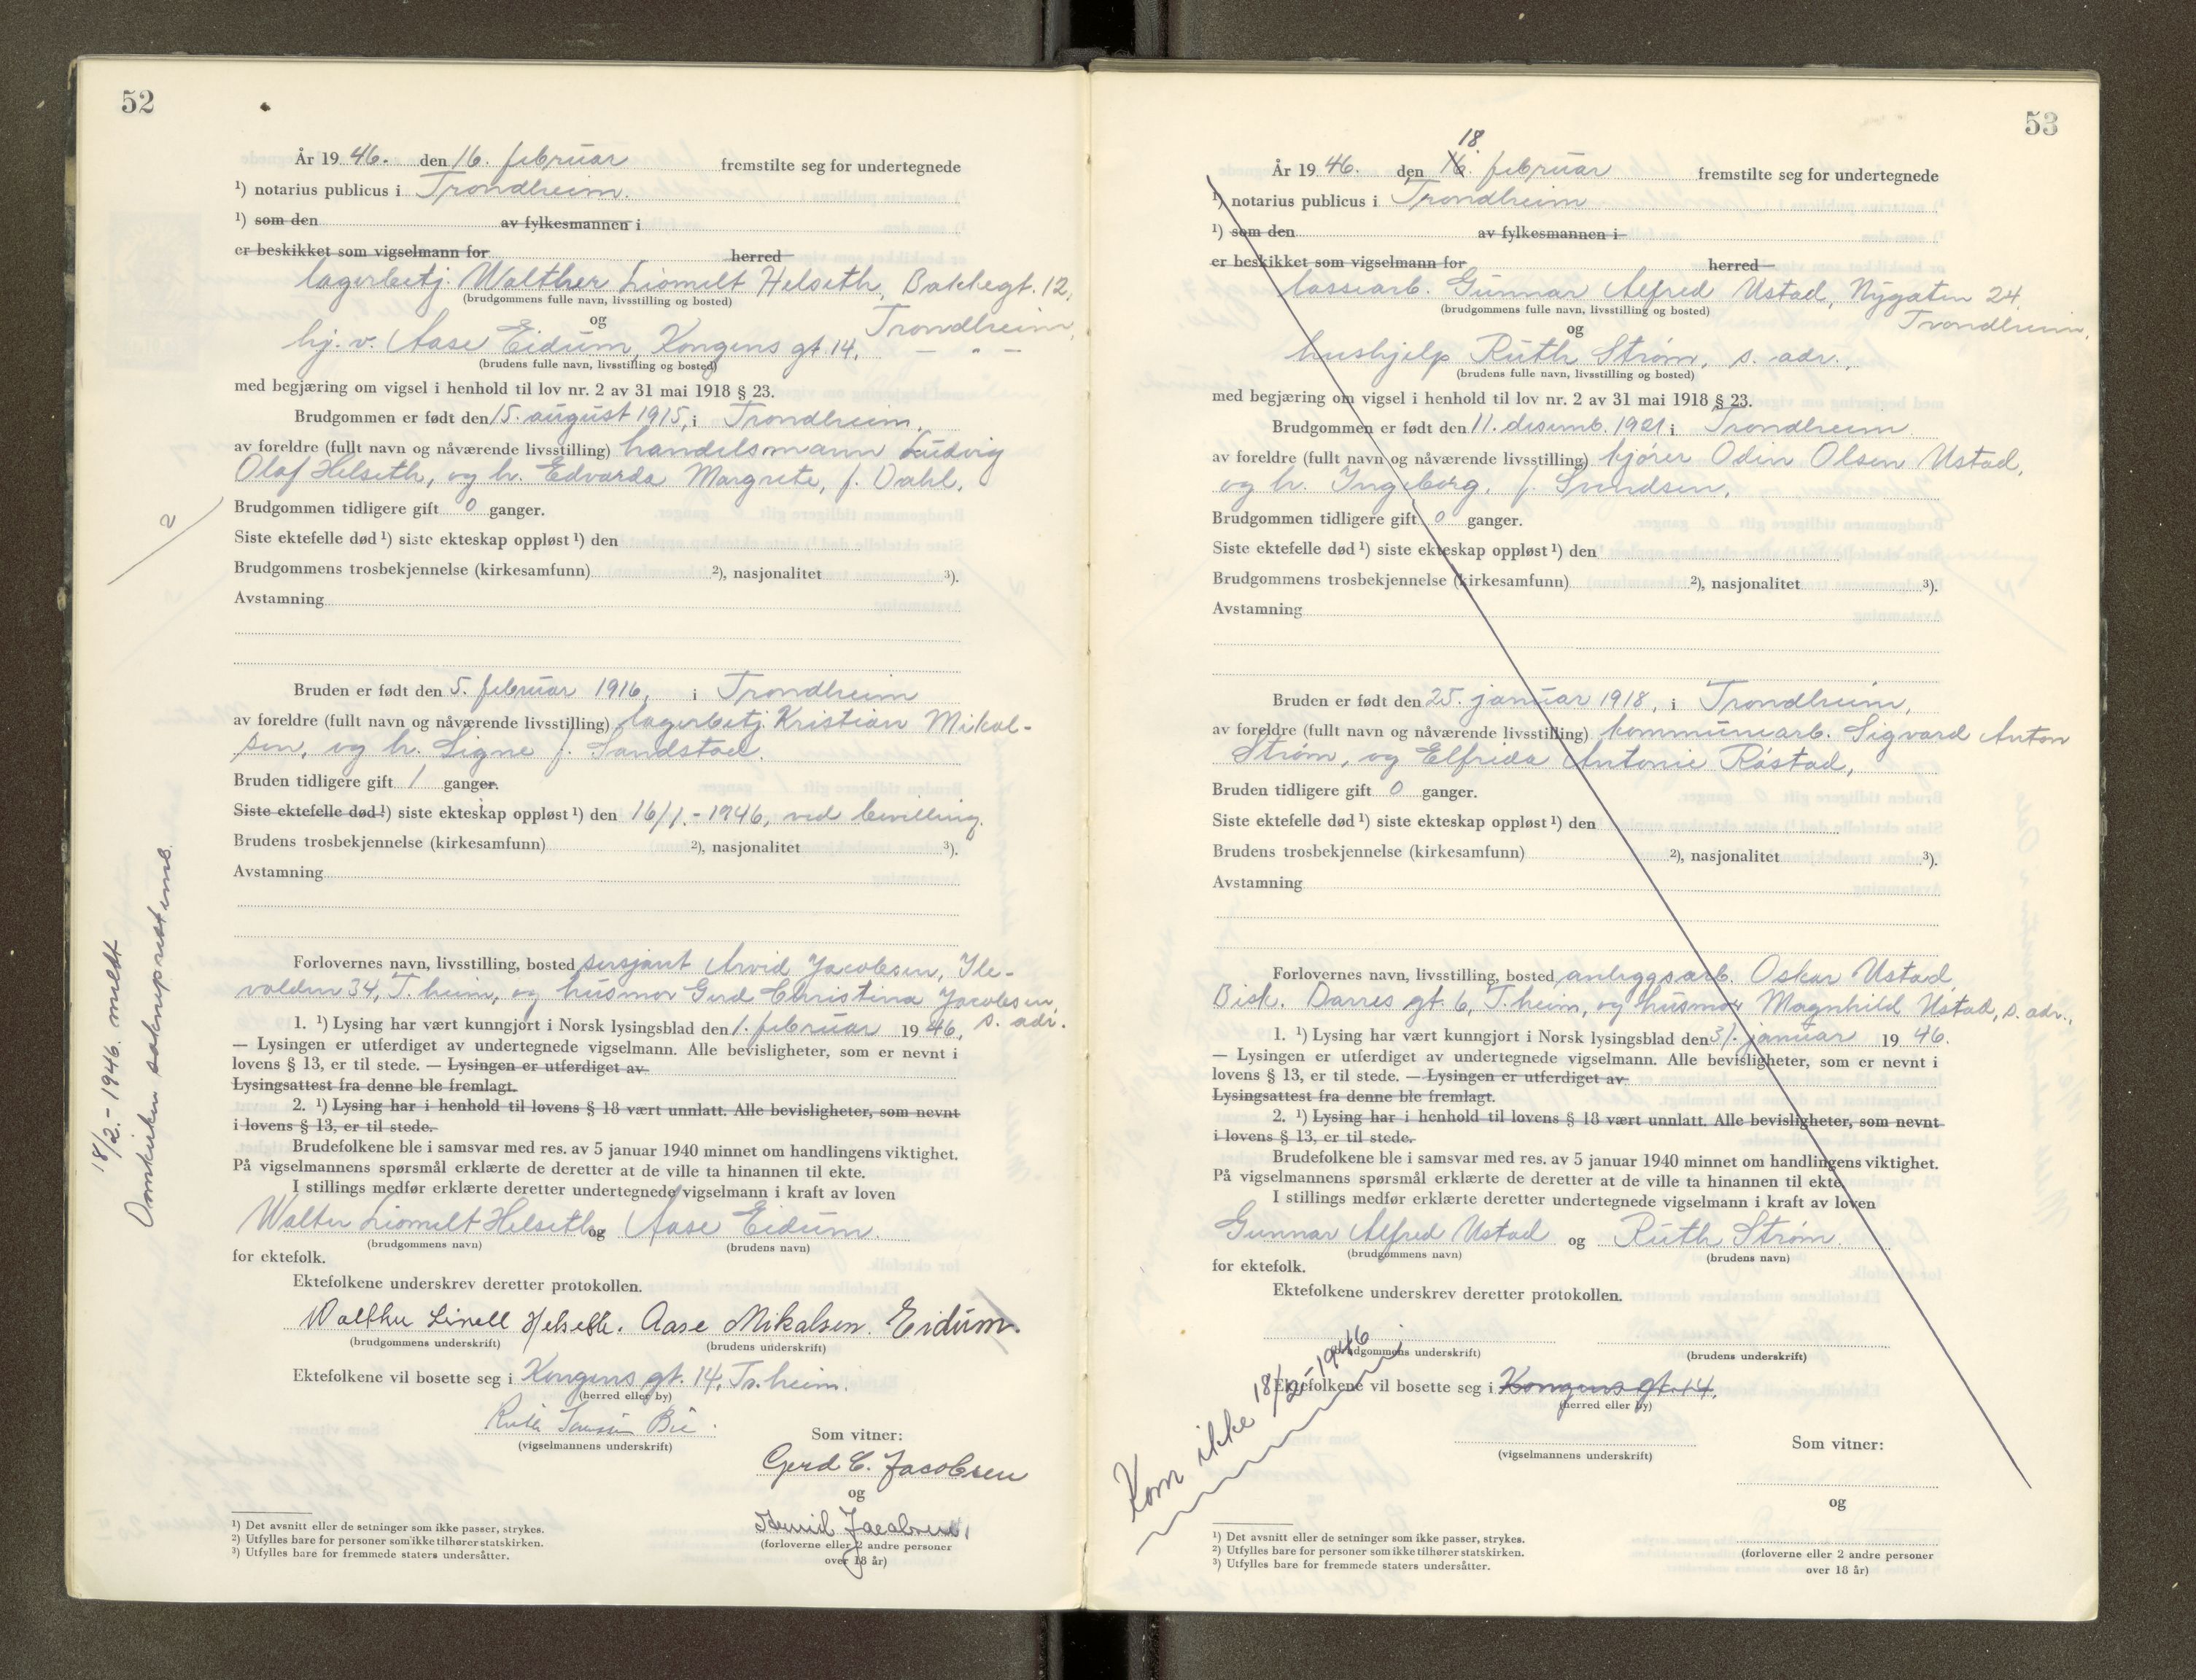 52
År 19 46. den 16. februar fremstilte seg for undertegnede
¹) notarius publicus i Trondheim.
¹) som den av fylkesmannen i
er beskikket som vigselmann for herred
lagerbetj. Walther Liomelt Helseth, Bakkegt. 12,
(brudgommens fulle navn, livsstilling og bosted)
og Trondheim,
hj. v. Aase Eidum, Kongens gt 14, — " —
(brudens fulle navn, livsstilling og bosted)
med begjæring om vigsel i henhold til lov nr. 2 av 31 mai 1918 § 23.
Brudgommen er født den 15. august 1915, i Trondheim,
av foreldre (fullt navn og nåværende livsstilling) handelsmann Ludvig
Olaf Helseth, og h. Edvarda Margrete, f. Dahl.
Brudgommen tidligere gift 0 ganger.
2
Siste ektefelle død ¹) siste ekteskap oppløst ¹) den
Brudgommens trosbekjennelse (kirkesamfunn) ²), nasjonalitet ³).
Avstamning
Bruden er født den 5. februar 1916, i Trondheim
av foreldre (fullt navn og nåværende livsstilling) lagerbetj. Kristian Mikal-
sen, og h. Signe f. Sandstad.
Bruden tidligere gift 1 ganger.
Siste ektefelle død ¹) siste ekteskap oppløst ¹) den 16/1.-1946, ved bevilling.
Brudens trosbekjennelse (kirkesamfunn) ²), nasjonalitet ³).
Avstamning
18/2.-1946. meldt
Domkirken sokneprestemb.
Forlovernes navn, livsstilling, bosted sersjant Arvid Jacobsen, Ile-
volden 34, T.heim, og husmor Gerd Christina Jacobsen,
s. adr.
1. ¹) Lysing har vært kunngjort i Norsk lysingsblad den 1. februar 19 46,
— Lysingen er utferdiget av undertegnede vigselmann. Alle bevisligheter, som er nevnt i
lovens § 13, er til stede. — Lysingen er utferdiget av
Lysingsattest fra denne ble fremlagt.
2. ¹) Lysing har i henhold til lovens § 18 vært unnlatt. Alle bevisligheter, som nevnt
i lovens § 13, er til stede.
Brudefolkene ble i samsvar med res. av 5 januar 1940 minnet om handlingens viktighet.
På vigselmannens spørsmål erklærte de deretter at de ville ta hinannen til ekte.
I stillings medfør erklærte deretter undertegnede vigselmann i kraft av loven
Walter Liomelt Helseth og Aase Eidum.
(brudgommens navn) (brudens navn)
for ektefolk.
Ektefolkene underskrev deretter protokollen.
Walther Linell Helseth. Aase Mikalsen. Eidum.
(brudgommens underskrift) (brudens underskrift)
Ektefolkene vil bosette seg i Kongens gt. 14, Tr.heim.
(herred eller by)
(vigselmannens underskrift)
Som vitner:
Gerd C. Jacobsen
og
Jacobsen
(forloverne eller 2 andre personer
over 18 år)
¹) Det avsnitt eller de setninger som ikke passer, strykes.
²) Utfylles bare for personer som ikke tilhører statskirken.
³) Utfylles bare for fremmede staters undersåtter.
53
18.
År 19 46. den 16. februar fremstilte seg for undertegnede
¹) notarius publicus i Trondheim
¹) som den av fylkesmannen i
er beskikket som vigselmann for herred
lossearb. Gunnar Alfred Ustad, Nygaten 24,
(brudgommens fulle navn, livsstilling og bosted)
Trondheim,
og
hushjelp Ruth Strøm, s. adr.,
(brudens fulle navn, livsstilling og bosted)
med begjæring om vigsel i henhold til lov nr. 2 av 31 mai 1918 § 23.
Brudgommen er født den 11. desemb. 1921 i Trondheim.
av foreldre (fullt navn og nåværende livsstilling) kjører Odin Olsen Ustad,
og h. Ingeborg, f. Svendsen,
Brudgommen tidligere gift 0 ganger.
Siste ektefelle død ¹) siste ekteskap oppløst ¹) den
Brudgommens trosbekjennelse (kirkesamfunn) ²), nasjonalitet ³).
Avstamning
Bruden er født den 25. januar 1918, i Trondheim,
av foreldre (fullt navn og nåværende livsstilling) kommunearb. Sigvard Anton
Strøm, og Elfrida Antonie Råstad,
Bruden tidligere gift 0 ganger.
Siste ektefelle død ¹) siste ekteskap oppløst ¹) den
Brudens trosbekjennelse (kirkesamfunn) ²), nasjonalitet ³).
Avstamning
Forlovernes navn, livsstilling, bosted anleggsarb. Oskar Ustad,
Bisk. Darres gt. 6, T.heim, og husmor Magnhild Ustad, s. adr.,
1. ¹) Lysing har vært kunngjort i Norsk lysingsblad den 31. januar 19 46.
— Lysingen er utferdiget av undertegnede vigselmann. Alle bevisligheter, som er nevnt i
lovens § 13, er til stede. — Lysingen er utferdiget av
Lysingsattest fra denne ble fremlagt.
2. ¹) Lysing har i henhold til lovens § 18 vært unnlatt. Alle bevisligheter, som nevnt
i lovens § 13, er til stede.
Brudefolkene ble i samsvar med res. av 5 januar 1940 minnet om handlingens viktighet.
På vigselmannens spørsmål erklærte de deretter at de ville ta hinannen til ekte.
I stillings medfør erklærte deretter undertegnede vigselmann i kraft av loven
Gunnar Alfred Ustad og Ruth Strøm.
(brudgommens navn) (brudens navn)
for ektefolk.
Ektefolkene underskrev deretter protokollen.
(brudgommens underskrift) (brudens underskrift)
Ektefolkene vil bosette seg i Kongens gt. 14.
(herred eller by)
Kom ikke 18/2-1946
(vigselmannens underskrift)
Som vitner:
og
(forloverne eller 2 andre personer
over 18 år)
¹) Det avsnitt eller de setninger som ikke passer, strykes.
²) Utfylles bare for personer som ikke tilhører statskirken.
³) Utfylles bare for fremmede staters undersåtter.